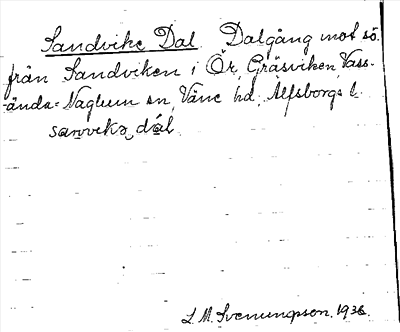 Sandvike Dal Dalgång mot sö.
från Sandviken i Ör, Gräsviken, Vass-
ända-Naglum sn, Väne hd, Älfsborgs l.
sanvikə dál
L. M. Svenungsson, 1936.